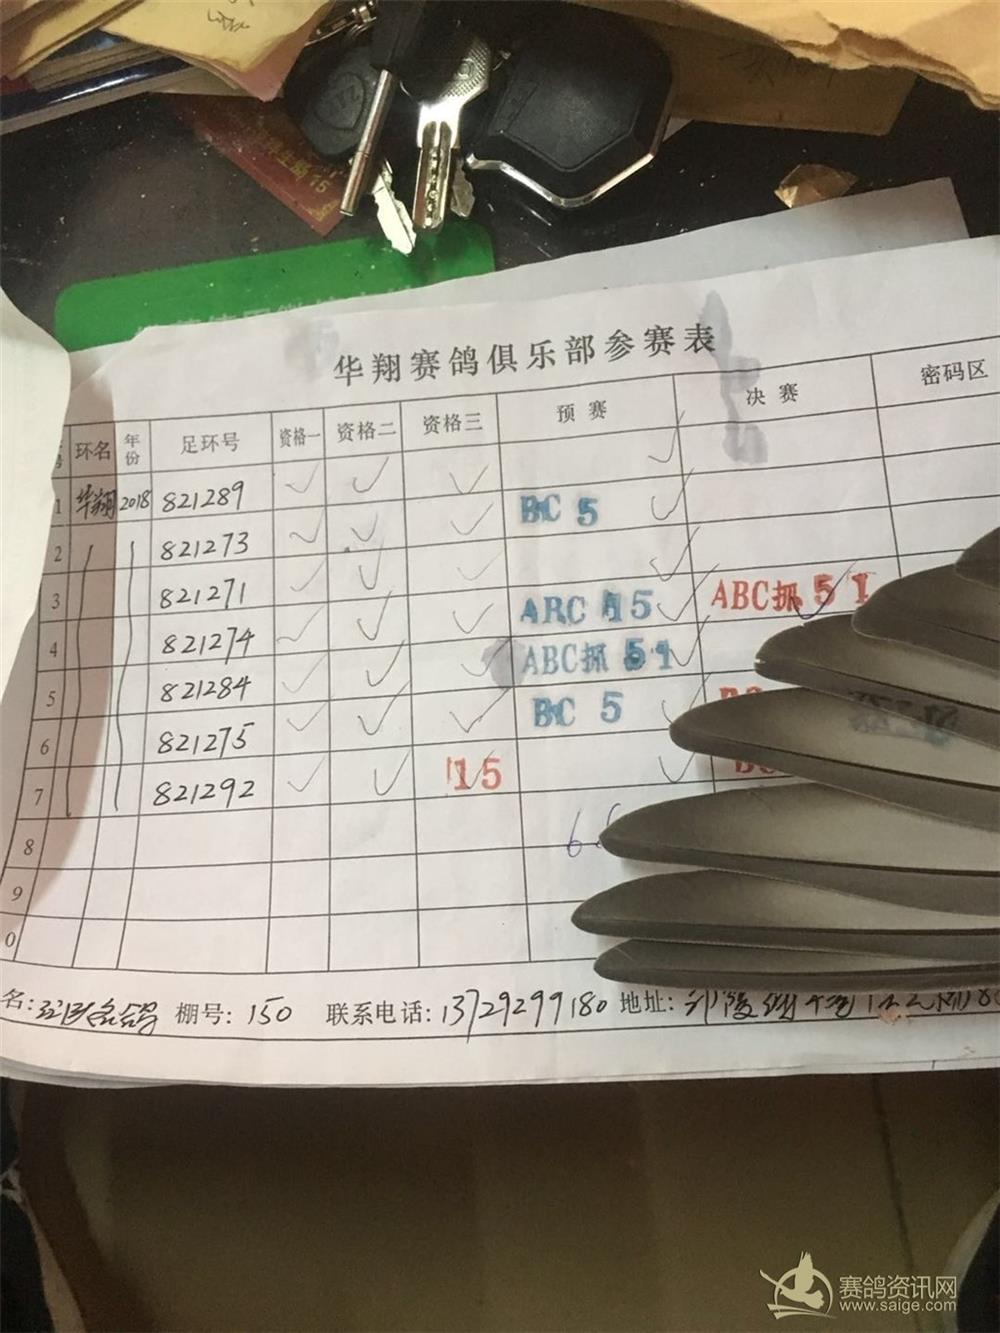 华翔赛鸽俱乐部参赛表
号 环名 年份 足环号 资格一 资格二 资格三 预赛 决赛 密码区
1 华翔 2018 821289 BC 5
2 821273
3 821271 ABC 15 ABC抓 5 1
4 821274 ABC抓 51
5 821284 BC 5
6 821275
7 821292 15
8
9
0
名: 棚号: 150 联系电话: 13729299180 地址:
赛鸽资讯网
www.saige.com